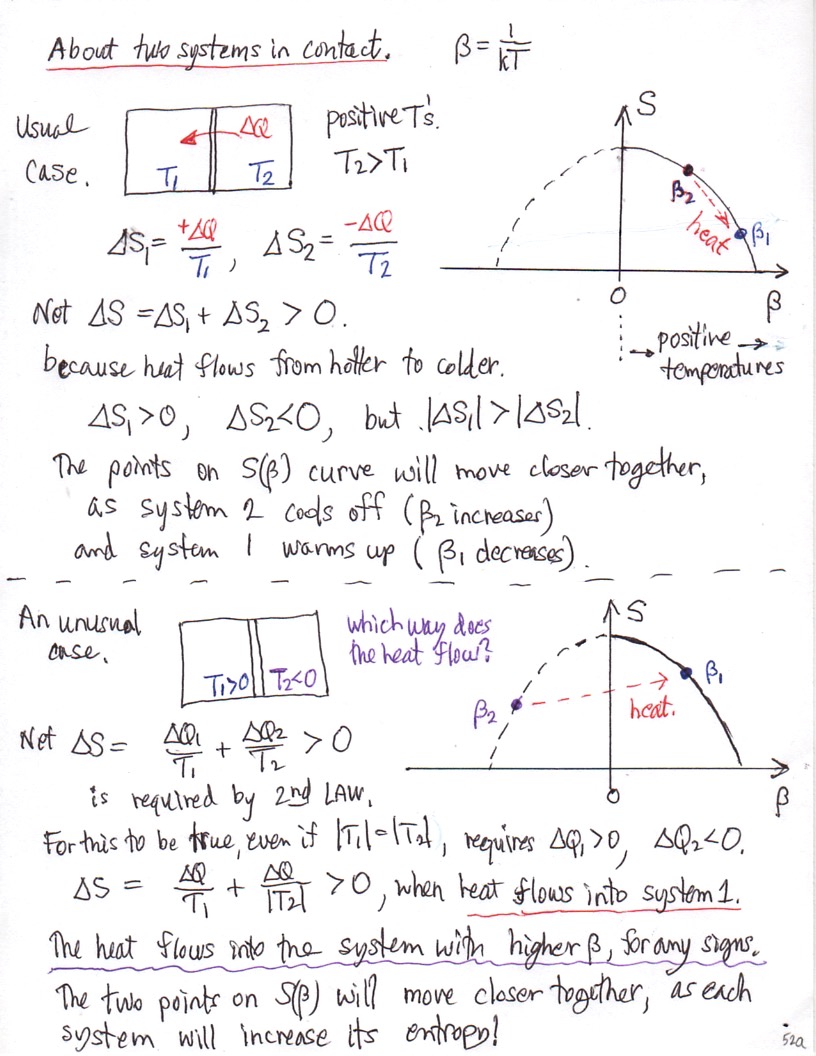 About two systems in contact. β = 1/kT
Usual case.
ΔQ
T₁ T₂
positive T's.
T₂>T₁
S
β₂
heat
β₁
0 β
→ positive →
temperatures
ΔS₁ = +ΔQ/T₁, ΔS₂ = -ΔQ/T₂
Net ΔS = ΔS₁ + ΔS₂ > 0.
because heat flows from hotter to colder.
ΔS₁>0, ΔS₂<0, but |ΔS₁| > |ΔS₂|.
The points on S(β) curve will move closer together,
as system 2 cools off (β₂ increases)
and system 1 warms up (β₁ decreases).
An unusual case.
T₁>0 T₂<0
which way does
the heat flow?
S
β₁
β₂
heat.
0 β
Net ΔS = ΔQ₁/T₁ + ΔQ₂/T₂ > 0
is required by 2nd LAW.
For this to be true, even if |T₁|=|T₂|, requires ΔQ₁>0, ΔQ₂<0.
ΔS = ΔQ/T₁ + ΔQ/|T₂| > 0, when heat flows into system 1.
The heat flows into the system with higher β, for any signs.
The two points on S(β) will move closer together, as each
system will increase its entropy!
52a